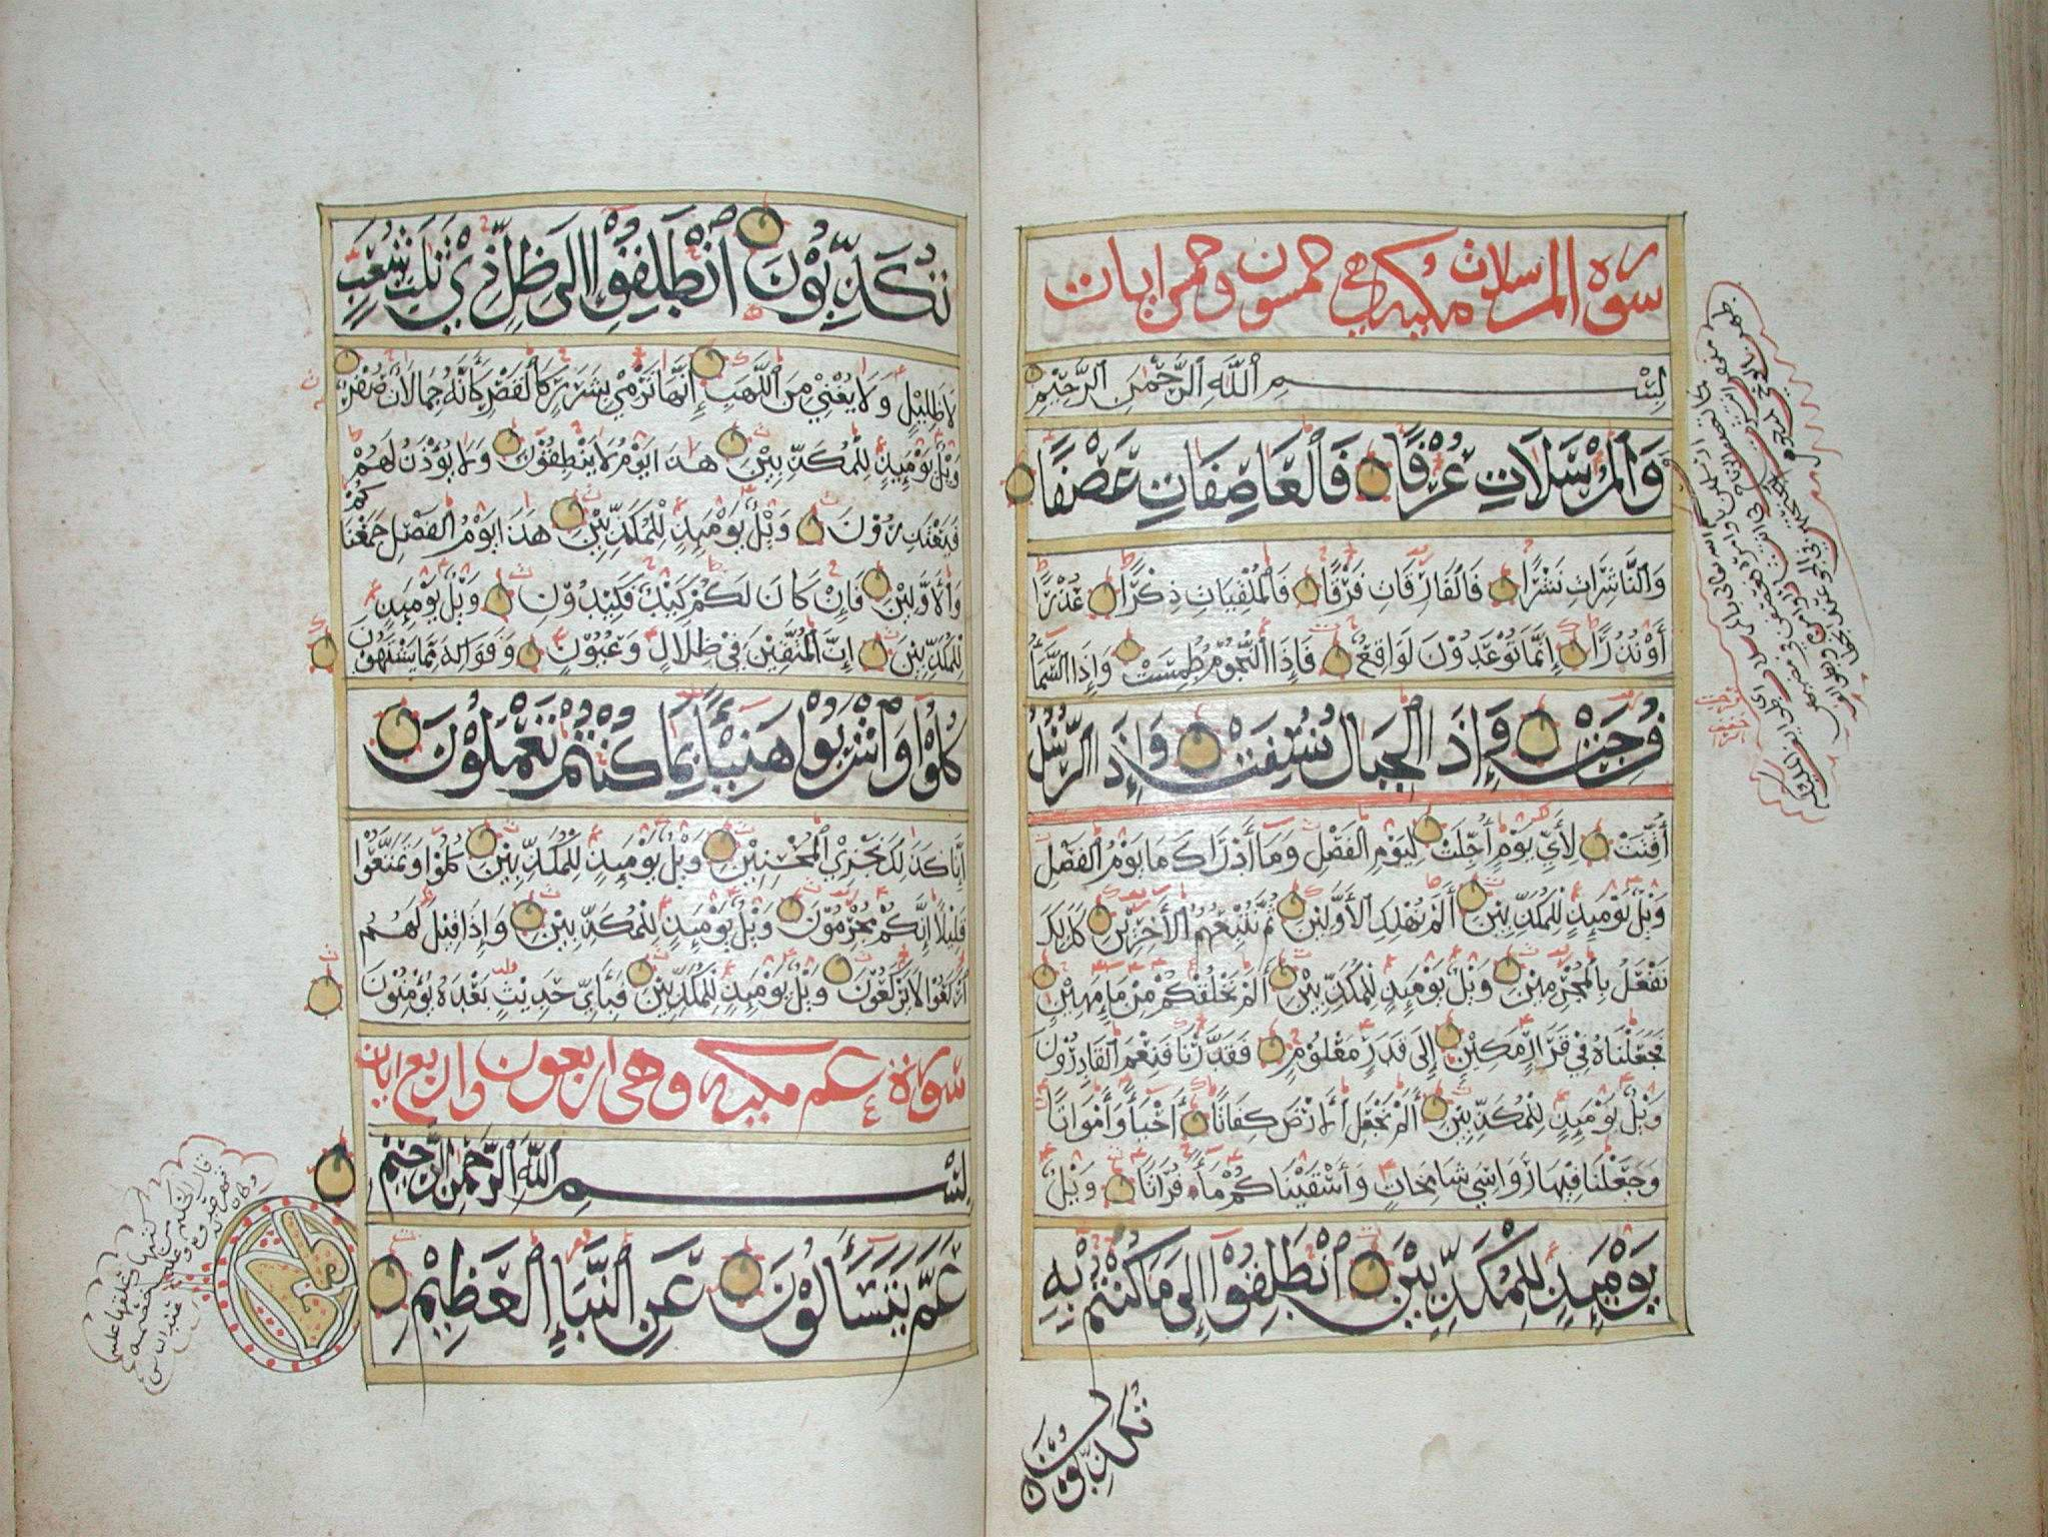 سورة المرسلات مكيه وهي خمسون وخمس ايات
بِسْمِ اللَّهِ الرَّحْمٰنِ الرَّحِيْمِ
وَالْمُرْسَلَاتِ عُرْفًا فَالْعَاصِفَاتِ عَصْفًا
وَالنَّاشِرَاتِ نَشْرًا فَالْفَارِقَاتِ فَرْقًا فَالْمُلْقِيَاتِ ذِكْرًا عُذْرًا
أَوْ نُذْرًا إِنَّمَا تُوْعَدُوْنَ لَوَاقِعٌ فَإِذَا النُّجُوْمُ طُمِسَتْ وَإِذَا السَّمَآءُ
فُرِجَتْ وَإِذَا الْجِبَالُ نُسِفَتْ وَإِذَا الرُّسُلُ
أُقِّتَتْ لِأَيِّ يَوْمٍ أُجِّلَتْ لِيَوْمِ الْفَصْلِ وَمَا أَدْرَاكَ مَا يَوْمُ الْفَصْلِ
وَيْلٌ يَوْمَئِذٍ لِلْمُكَذِّبِيْنَ أَلَمْ نُهْلِكِ الْأَوَّلِيْنَ ثُمَّ نُتْبِعُهُمُ الْآخِرِيْنَ كَذٰلِكَ
نَفْعَلُ بِالْمُجْرِمِيْنَ وَيْلٌ يَوْمَئِذٍ لِلْمُكَذِّبِيْنَ أَلَمْ نَخْلُقْكُمْ مِنْ مَاءٍ مَهِيْنٍ
فَجَعَلْنَاهُ فِيْ قَرَارٍ مَكِيْنٍ إِلَى قَدَرٍ مَعْلُوْمٍ فَقَدَرْنَا فَنِعْمَ الْقَادِرُوْنَ
وَيْلٌ يَوْمَئِذٍ لِلْمُكَذِّبِيْنَ أَلَمْ نَجْعَلِ الْأَرْضَ كِفَاتًا أَحْيَاءً وَأَمْوَاتًا
وَجَعَلْنَا فِيْهَا رَوَاسِيَ شَامِخَاتٍ وَأَسْقَيْنَاكُمْ مَاءً فُرَاتًا وَيْلٌ
يَوْمَئِذٍ لِلْمُكَذِّبِيْنَ انْطَلِقُوْا إِلَى مَا كُنْتُمْ بِهِ
تُكَذِّبُوْنَ
تُكَذِّبُوْنَ انْطَلِقُوْا إِلَى ظِلٍّ ذِيْ ثَلٰثِ شُعَبٍ
لَا ظَلِيْلٍ وَلَا يُغْنِيْ مِنَ اللَّهَبِ إِنَّهَا تَرْمِيْ بِشَرَرٍ كَالْقَصْرِ كَأَنَّهُ جِمَالَاتٌ صُفْرٌ
وَيْلٌ يَوْمَئِذٍ لِلْمُكَذِّبِيْنَ هٰذَا يَوْمُ لَا يَنْطِقُوْنَ وَلَا يُؤْذَنُ لَهُمْ
فَيَعْتَذِرُوْنَ وَيْلٌ يَوْمَئِذٍ لِلْمُكَذِّبِيْنَ هٰذَا يَوْمُ الْفَصْلِ جَمَعْنَاكُمْ
وَالْأَوَّلِيْنَ فَإِنْ كَانَ لَكُمْ كَيْدٌ فَكِيْدُوْنِ وَيْلٌ يَوْمَئِذٍ
لِلْمُكَذِّبِيْنَ إِنَّ الْمُتَّقِيْنَ فِيْ ظِلَالٍ وَعُيُوْنٍ وَفَوَاكِهَ مِمَّا يَشْتَهُوْنَ
كُلُوْا وَاشْرَبُوْا هَنِيْئًا بِمَا كُنْتُمْ تَعْمَلُوْنَ
إِنَّا كَذٰلِكَ نَجْزِي الْمُحْسِنِيْنَ وَيْلٌ يَوْمَئِذٍ لِلْمُكَذِّبِيْنَ كُلُوْا وَتَمَتَّعُوْا
قَلِيْلًا إِنَّكُمْ مُجْرِمُوْنَ وَيْلٌ يَوْمَئِذٍ لِلْمُكَذِّبِيْنَ وَإِذَا قِيْلَ لَهُمُ
ارْكَعُوْا لَا يَرْكَعُوْنَ وَيْلٌ يَوْمَئِذٍ لِلْمُكَذِّبِيْنَ فَبِأَيِّ حَدِيْثٍ بَعْدَهُ يُؤْمِنُوْنَ
سورة عم مكيه وهي اربعون واربع ايات
بِسْمِ اللَّهِ الرَّحْمٰنِ الرَّحِيْمِ
عَمَّ يَتَسَاءَلُوْنَ عَنِ النَّبَإِ الْعَظِيْمِ